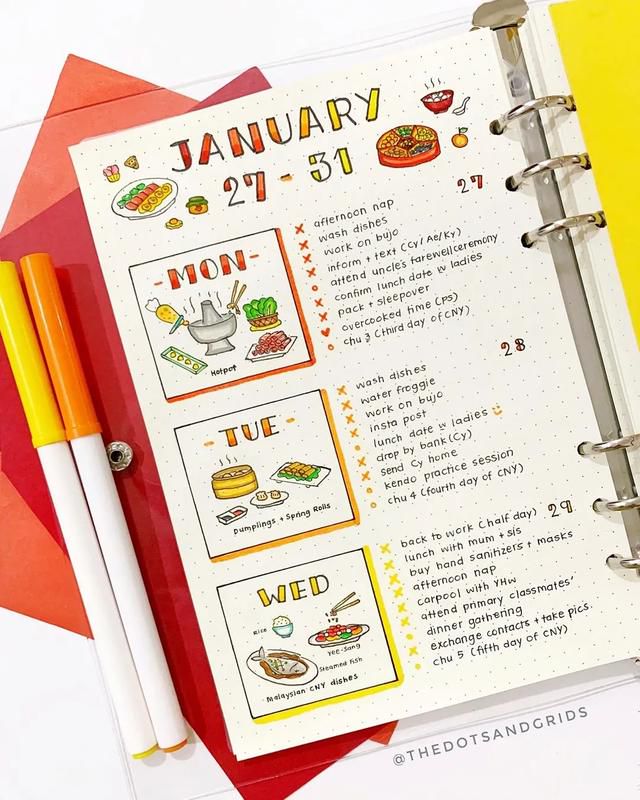 JANUARY
27 - 31
MON
Hotpot
27
afternoon nap
wash dishes
work on bujo
inform + text (Cy/Ae/Ky)
attend uncle's farewell ceremony
confirm lunch date w ladies
pack + sleepover
overcooked time (PS)
chu 3 (third day of CNY)
TUE
Dumplings + Spring Rolls
28
wash dishes
water froggie
work on bujo
insta post
lunch date w ladies
drop by bank (Cy)
send Cy home
kendo practice session
chu 4 (fourth day of CNY)
WED
Rice
Yee-Sang
Steamed Fish
Malaysian CNY dishes
29
back to work (half day)
lunch with mum + sis
buy hand sanitizers + masks
afternoon nap
carpool with YHW
attend primary classmates'
dinner gathering
exchange contacts + take pics.
chu 5 (fifth day of CNY)
@THEDOTSANDGRIDS